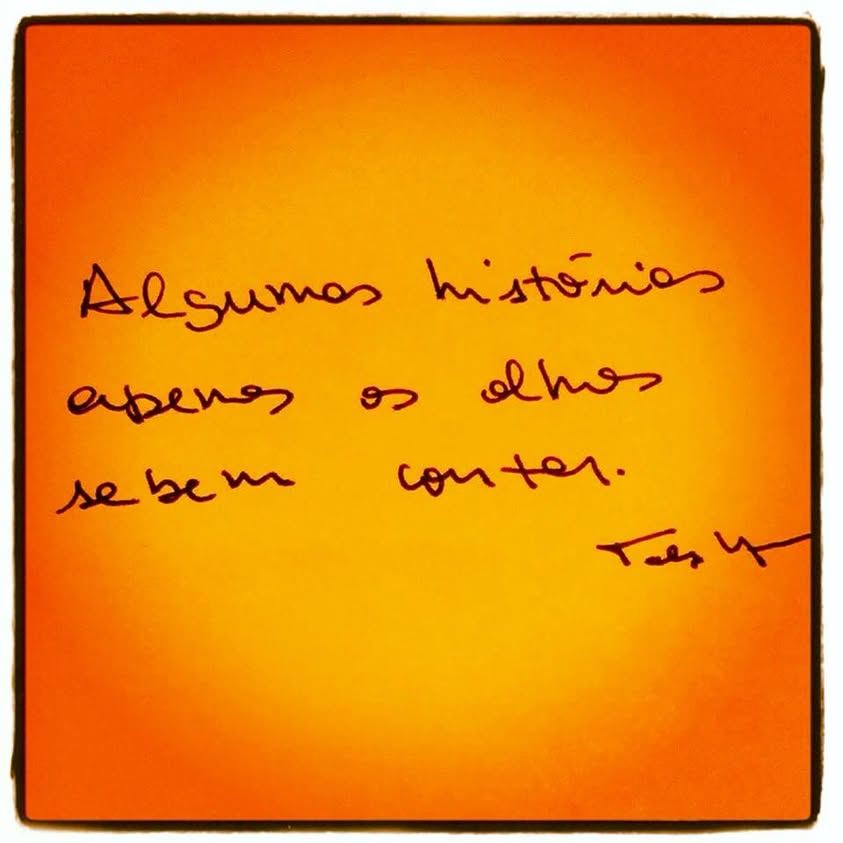 Algumas histórias
apenas os olhos
sabem contar.